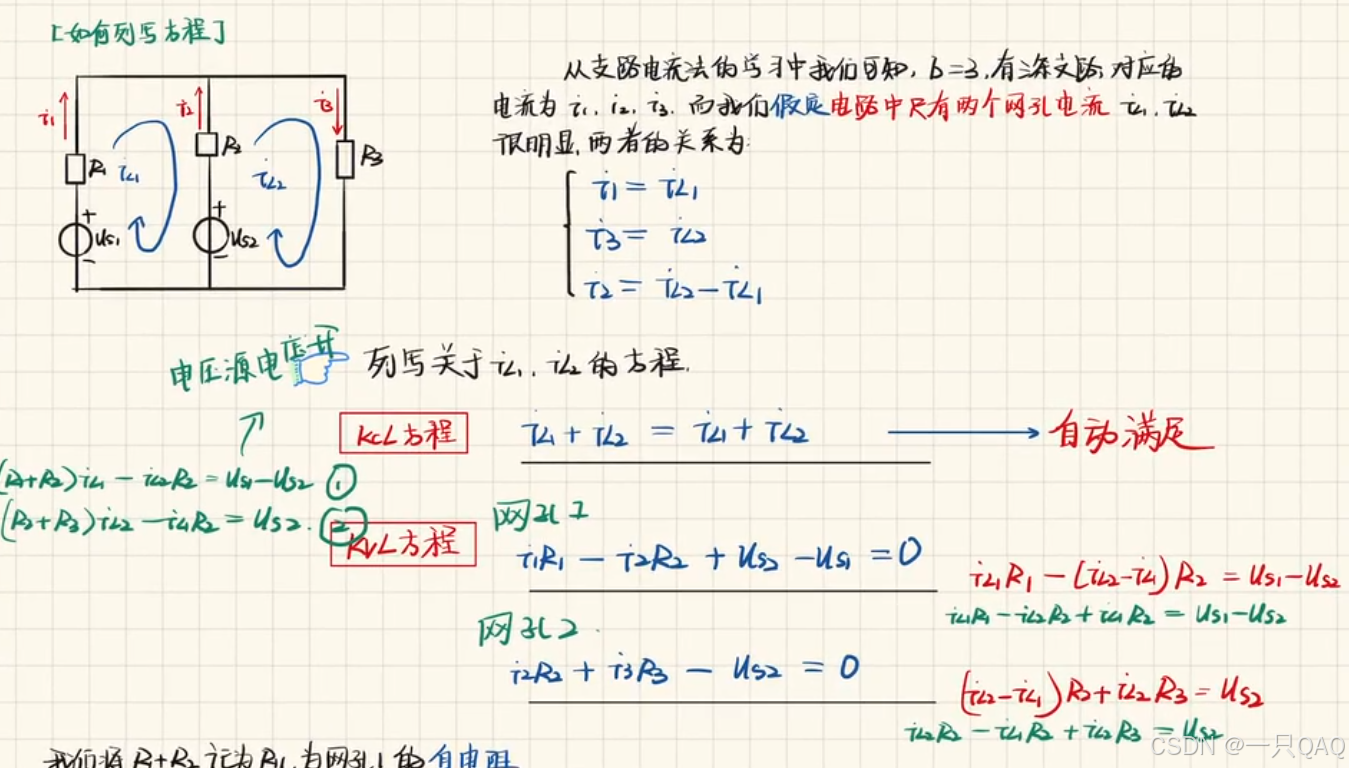 [如何列写方程]
从支路电流法的学习中我们可知，b=3，有三条支路，对应的
电流为 i1, i2, i3. 而我们假定电路中只有两个网孔电流 iL1, iL2
很明显，两者的关系为:
i1 = iL1
i3 = iL2
i2 = iL2-iL1
i1
R1
Us1
+
-
iL1
i2
R2
Us2
+
-
iL2
i3
R3
电压源电压升
列写关于 iL1, iL2 的方程.
KCL方程
iL1 + iL2 = iL1 + iL2
自动满足
(R1+R2)iL1 - iL2R2 = Us1-Us2 ①
(R2+R3)iL2 - iL1R2 = Us2. ②
KVL方程
网孔1
i1R1 - i2R2 + Us2 - Us1 = 0
iL1R1 - (iL2-iL1)R2 = Us1-Us2
iL1R1 - iL2R2 + iL1R2 = Us1-Us2
网孔2.
i2R2 + i3R3 - Us2 = 0
(iL2-iL1)R2 + iL2R3 = Us2
iL2R2 - iL1R2 + iL2R3 = Us2
我们将 R1+R2 记为 R11 为网孔1的自电阻
CSDN @一只QAQ